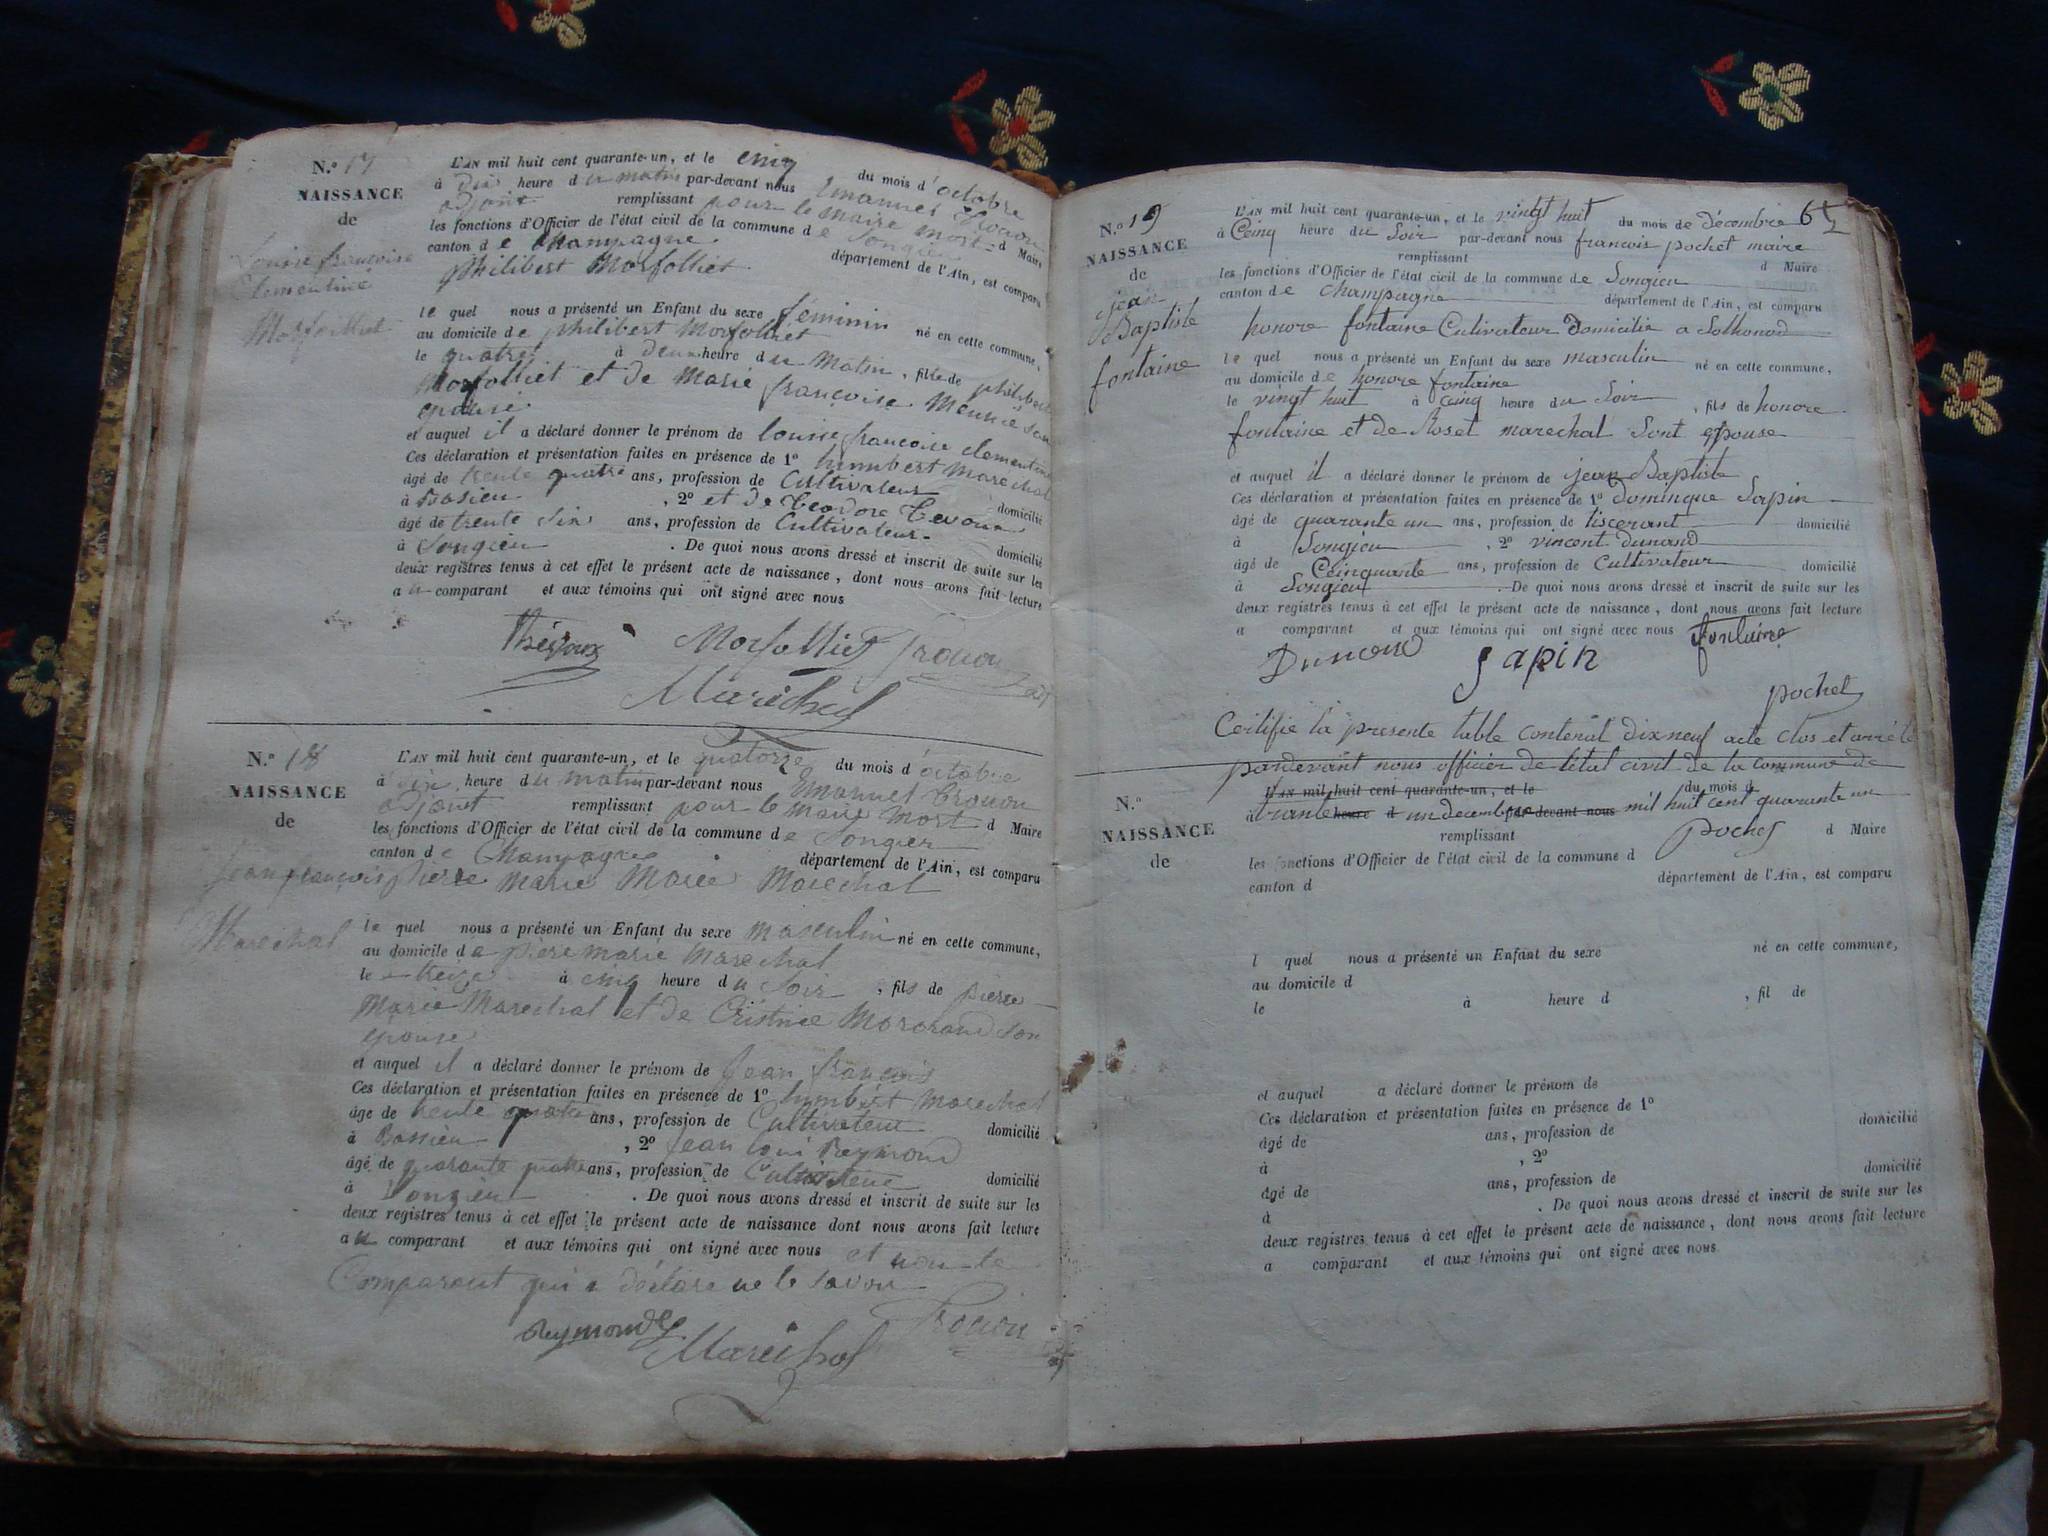 N.º 17
NAISSANCE
de
Louise françoise
Clementine
Morfolliet
L'AN mil huit cent quarante-un, et le cinq du mois d'octobre
à dix heure du matin par-devant nous Emanuel Trouon
adjoint remplissant pour le maire mort d Maire
les fonctions d'Officier de l'état civil de la commune de Songieu
canton de Champagne département de l'Ain, est comparu
philibert Morfolliet
le quel nous a présenté un Enfant du sexe féminin né en cette commune,
au domicile de philibert Morfolliet
le quatre à deux heure du Matin, fille de philibert
Morfolliet et de Marie françoise Meunié son
epouse
et auquel il a déclaré donner le prénom de louise francoise clementine
Ces déclaration et présentation faites en présence de 1º humbert Marechal
âgé de trente quatre ans, profession de Cultivateur domicilié
à Bassieu, 2º et de Teodore Tevoux
âgé de trente six ans, profession de Cultivateur domicilié
à Songieu . De quoi nous avons dressé et inscrit de suite sur les
deux registres tenus à cet effet le présent acte de naissance, dont nous avons fait lecture
au comparant et aux témoins qui ont signé avec nous
Thévoux Morfolliet Trouon adj
Maréchal
N.º 18
NAISSANCE
de
Jean françois
Marechal
L'AN mil huit cent quarante-un, et le quatorze du mois d'octobre
à dix heure du matin par-devant nous Emanuel Trouon
adjoint remplissant pour le maire mort d Maire
les fonctions d'Officier de l'état civil de la commune de Songieu
canton de Champagne département de l'Ain, est comparu
pierre marie Marechal
le quel nous a présenté un Enfant du sexe masculin né en cette commune,
au domicile de pierre marie Marechal
le treize à cinq heure du Soir, fils de pierre
Marie Marechal et de Cristine son
epouse
et auquel il a déclaré donner le prénom de Jean francois
Ces déclaration et présentation faites en présence de 1º humbert Marechal
âge de trente quatre ans, profession de Cultivateur domicilié
à Bassieu, 2º Jean loui Reymond
âgé de quarante quatre ans, profession de Cultivateur domicilié
à Songieu . De quoi nous avons dressé et inscrit de suite sur les
deux registres tenus à cet effet le présent acte de naissance dont nous avons fait lecture
au comparant et aux témoins qui ont signé avec nous et non le
Comparant qui a déclaré ne le savoir
Reymond Trouon
Maréchal
N.º 19
NAISSANCE
de
jean
Baptiste
fontaine
L'AN mil huit cent quarante-un, et le vingt huit du mois de décembre
à Ceinq heure du Soir par-devant nous francois pochet maire
remplissant d Maire
les fonctions d'Officier de l'état civil de la commune de Songieu
canton de champagne département de l'Ain, est comparu
honore fontaine Cultivateur Domicilié a Solhonod
le quel nous a présenté un Enfant du sexe masculin né en cette commune,
au domicile de honore fontaine
le vingt huit à cinq heure du Soir, fils de honore
fontaine et de Roset marechal Sont epouse
et auquel il a déclaré donner le prénom de jean Baptiste
Ces déclaration et présentation faites en présence de 1º dominque Sapin
âgé de quarante un ans, profession de tiscerant domicilié
à Songieu, 2º vincent dunand
âgé de Ceinquante ans, profession de Cultivateur domicilié
à Songieu . De quoi nous avons dressé et inscrit de suite sur les
deux registres tenus à cet effet le présent acte de naissance, dont nous avons fait lecture
a comparant et aux témoins qui ont signé avec nous fontaine
Dunand Sapin
pochet
Certifie la presente table contenut dix neuf acte clos et arrété
pardevant nous officier de l'état civil de la commune de
N.º
NAISSANCE
de
L'AN mil huit cent quarante-un, et le du mois d
à trante heure d un decembre par-devant nous mil huit cent quarante un
remplissant pochet d Maire
les fonctions d'Officier de l'état civil de la commune d
canton d département de l'Ain, est comparu
l quel nous a présenté un Enfant du sexe né en cette commune,
au domicile d
le à heure d , fil de
et auquel a déclaré donner le prénom de
Ces déclaration et présentation faites en présence de 1º
âgé de ans, profession de domicilié
à , 2º
âgé de ans, profession de domicilié
à . De quoi nous avons dressé et inscrit de suite sur les
deux registres tenus à cet effet le présent acte de naissance, dont nous avons fait lecture
a comparant et aux témoins qui ont signé avec nous